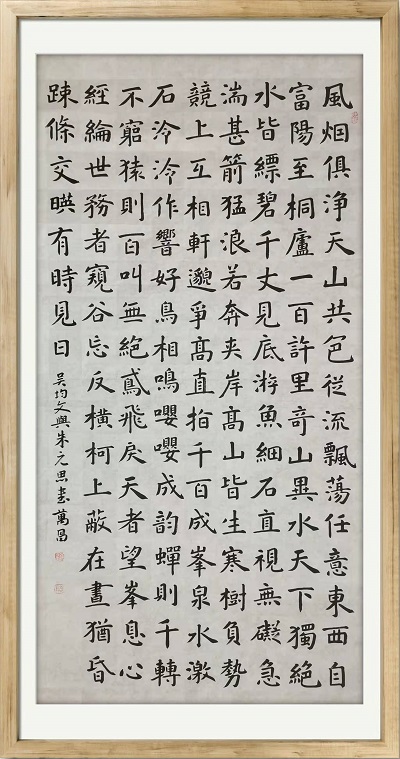 風烟俱淨天山共色從流飄蕩任意東西自
富陽至桐廬一百許里奇山異水天下獨絕
水皆縹碧千丈見底游魚細石直視無礙急
湍甚箭猛浪若奔夾岸高山皆生寒樹負勢
競上互相軒邈爭高直指千百成峯泉水激
石泠泠作響好鳥相鳴嚶嚶成韵蟬則千轉
不窮猿則百叫無絕鳶飛戾天者望峯息心
經綸世務者窺谷忘反橫柯上蔽在晝猶昏
疎條交暎有時見日
吳均文與朱元思書萬昌